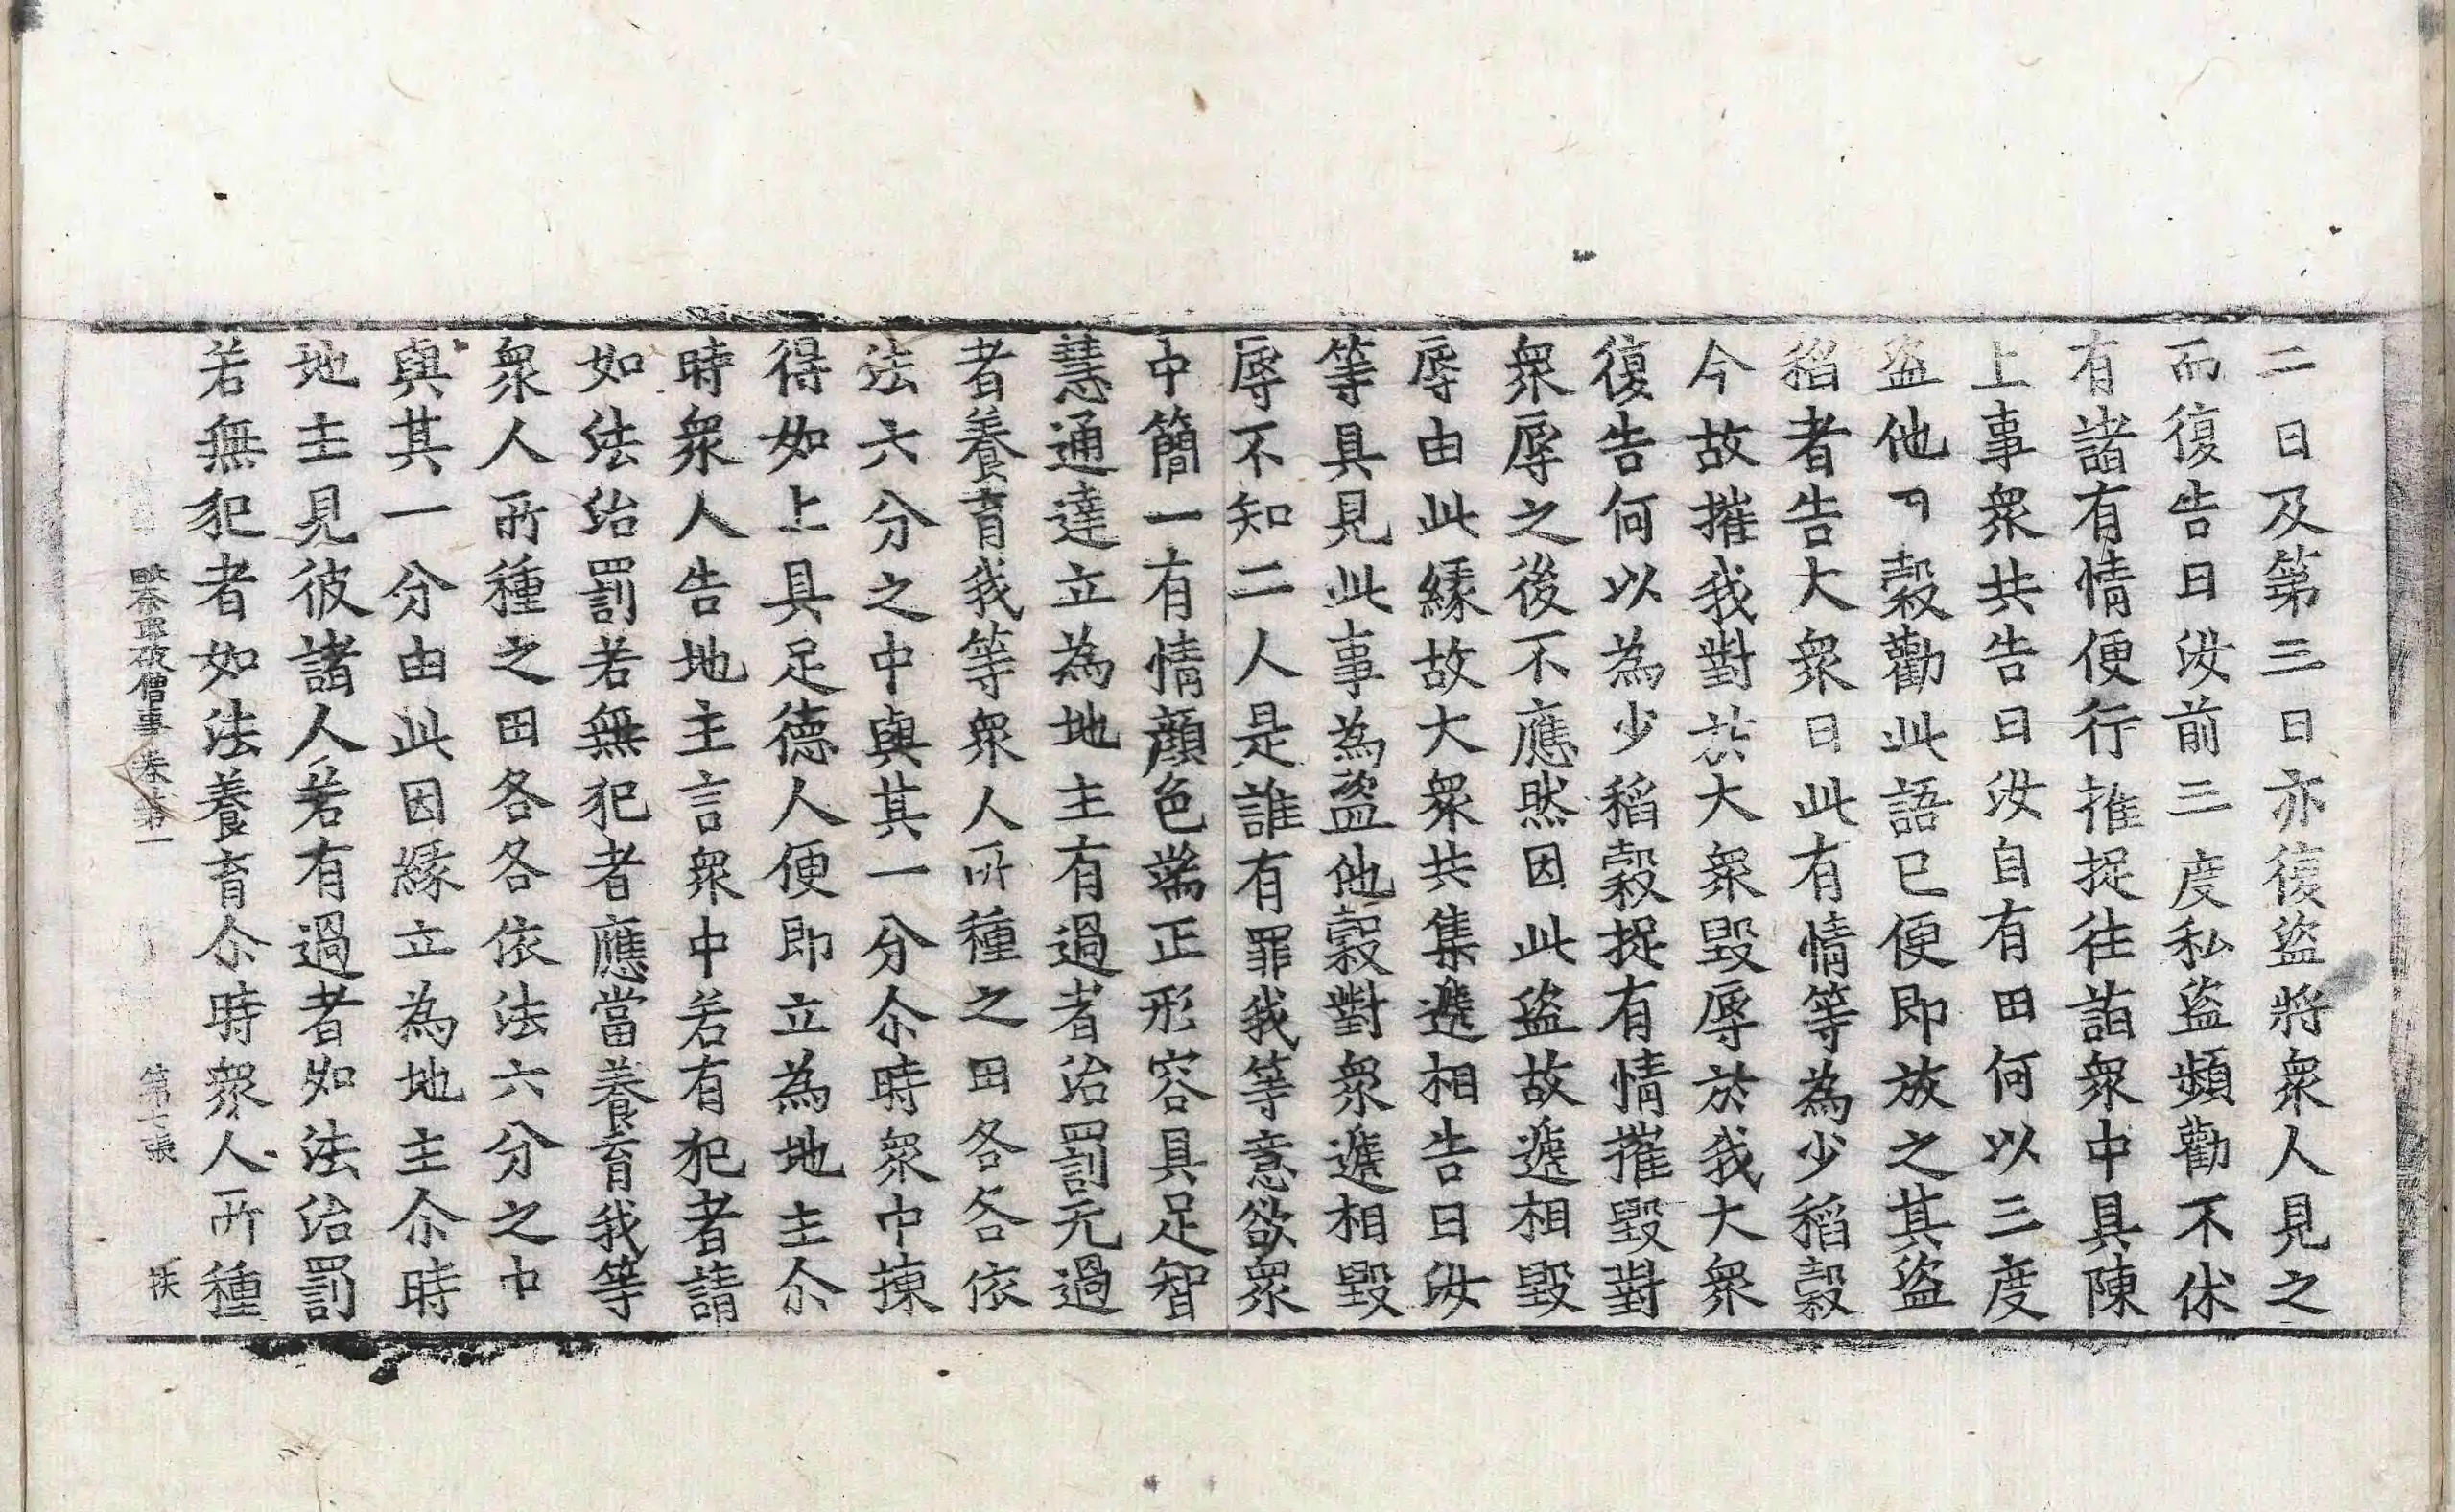 二日及第三日亦復盜將衆人見之
而復告曰汝前三度私盜頻勸不休
有諸有情便行推捉往詣衆中具陳
上事衆共告曰汝自有田何以三度
盜他 穀勸此語已便即放之其盜
稻者告大衆曰此有情等為少稻穀
今故摧我對於大衆毀辱於我大衆
復告何以為少稻穀捉有情摧毀對
衆辱之後不應然因此盜故遞相毀
辱由此緣故大衆共集遞相告曰汝
等具見此事為盜他穀對衆遞相毀
辱不知二人是誰有罪我等意欲衆
中簡一有情顔色端正形容具足智
慧通達立為地主有過者治罰无過
者養育我等衆人所種之田各各依
法六分之中與其一分尒時衆中揀
得如上具足德人便即立為地主尒
時衆人告地主言衆中若有犯者請
如法治罰若無犯者應當養育我等
衆人所種之田各各依法六分之中
與其一分由此因緣立為地主尒時
地主見彼諸人若有過者如法治罰
若無犯者如法養育尒時衆人所種
破僧事卷第一 第七張